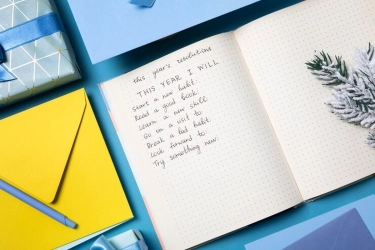 this year's resolutions
THIS YEAR I WILL
start a new habit
Read a good book
Learn a new skill
Go on a visit to
Break a bad habit
Look forward to
Try something new